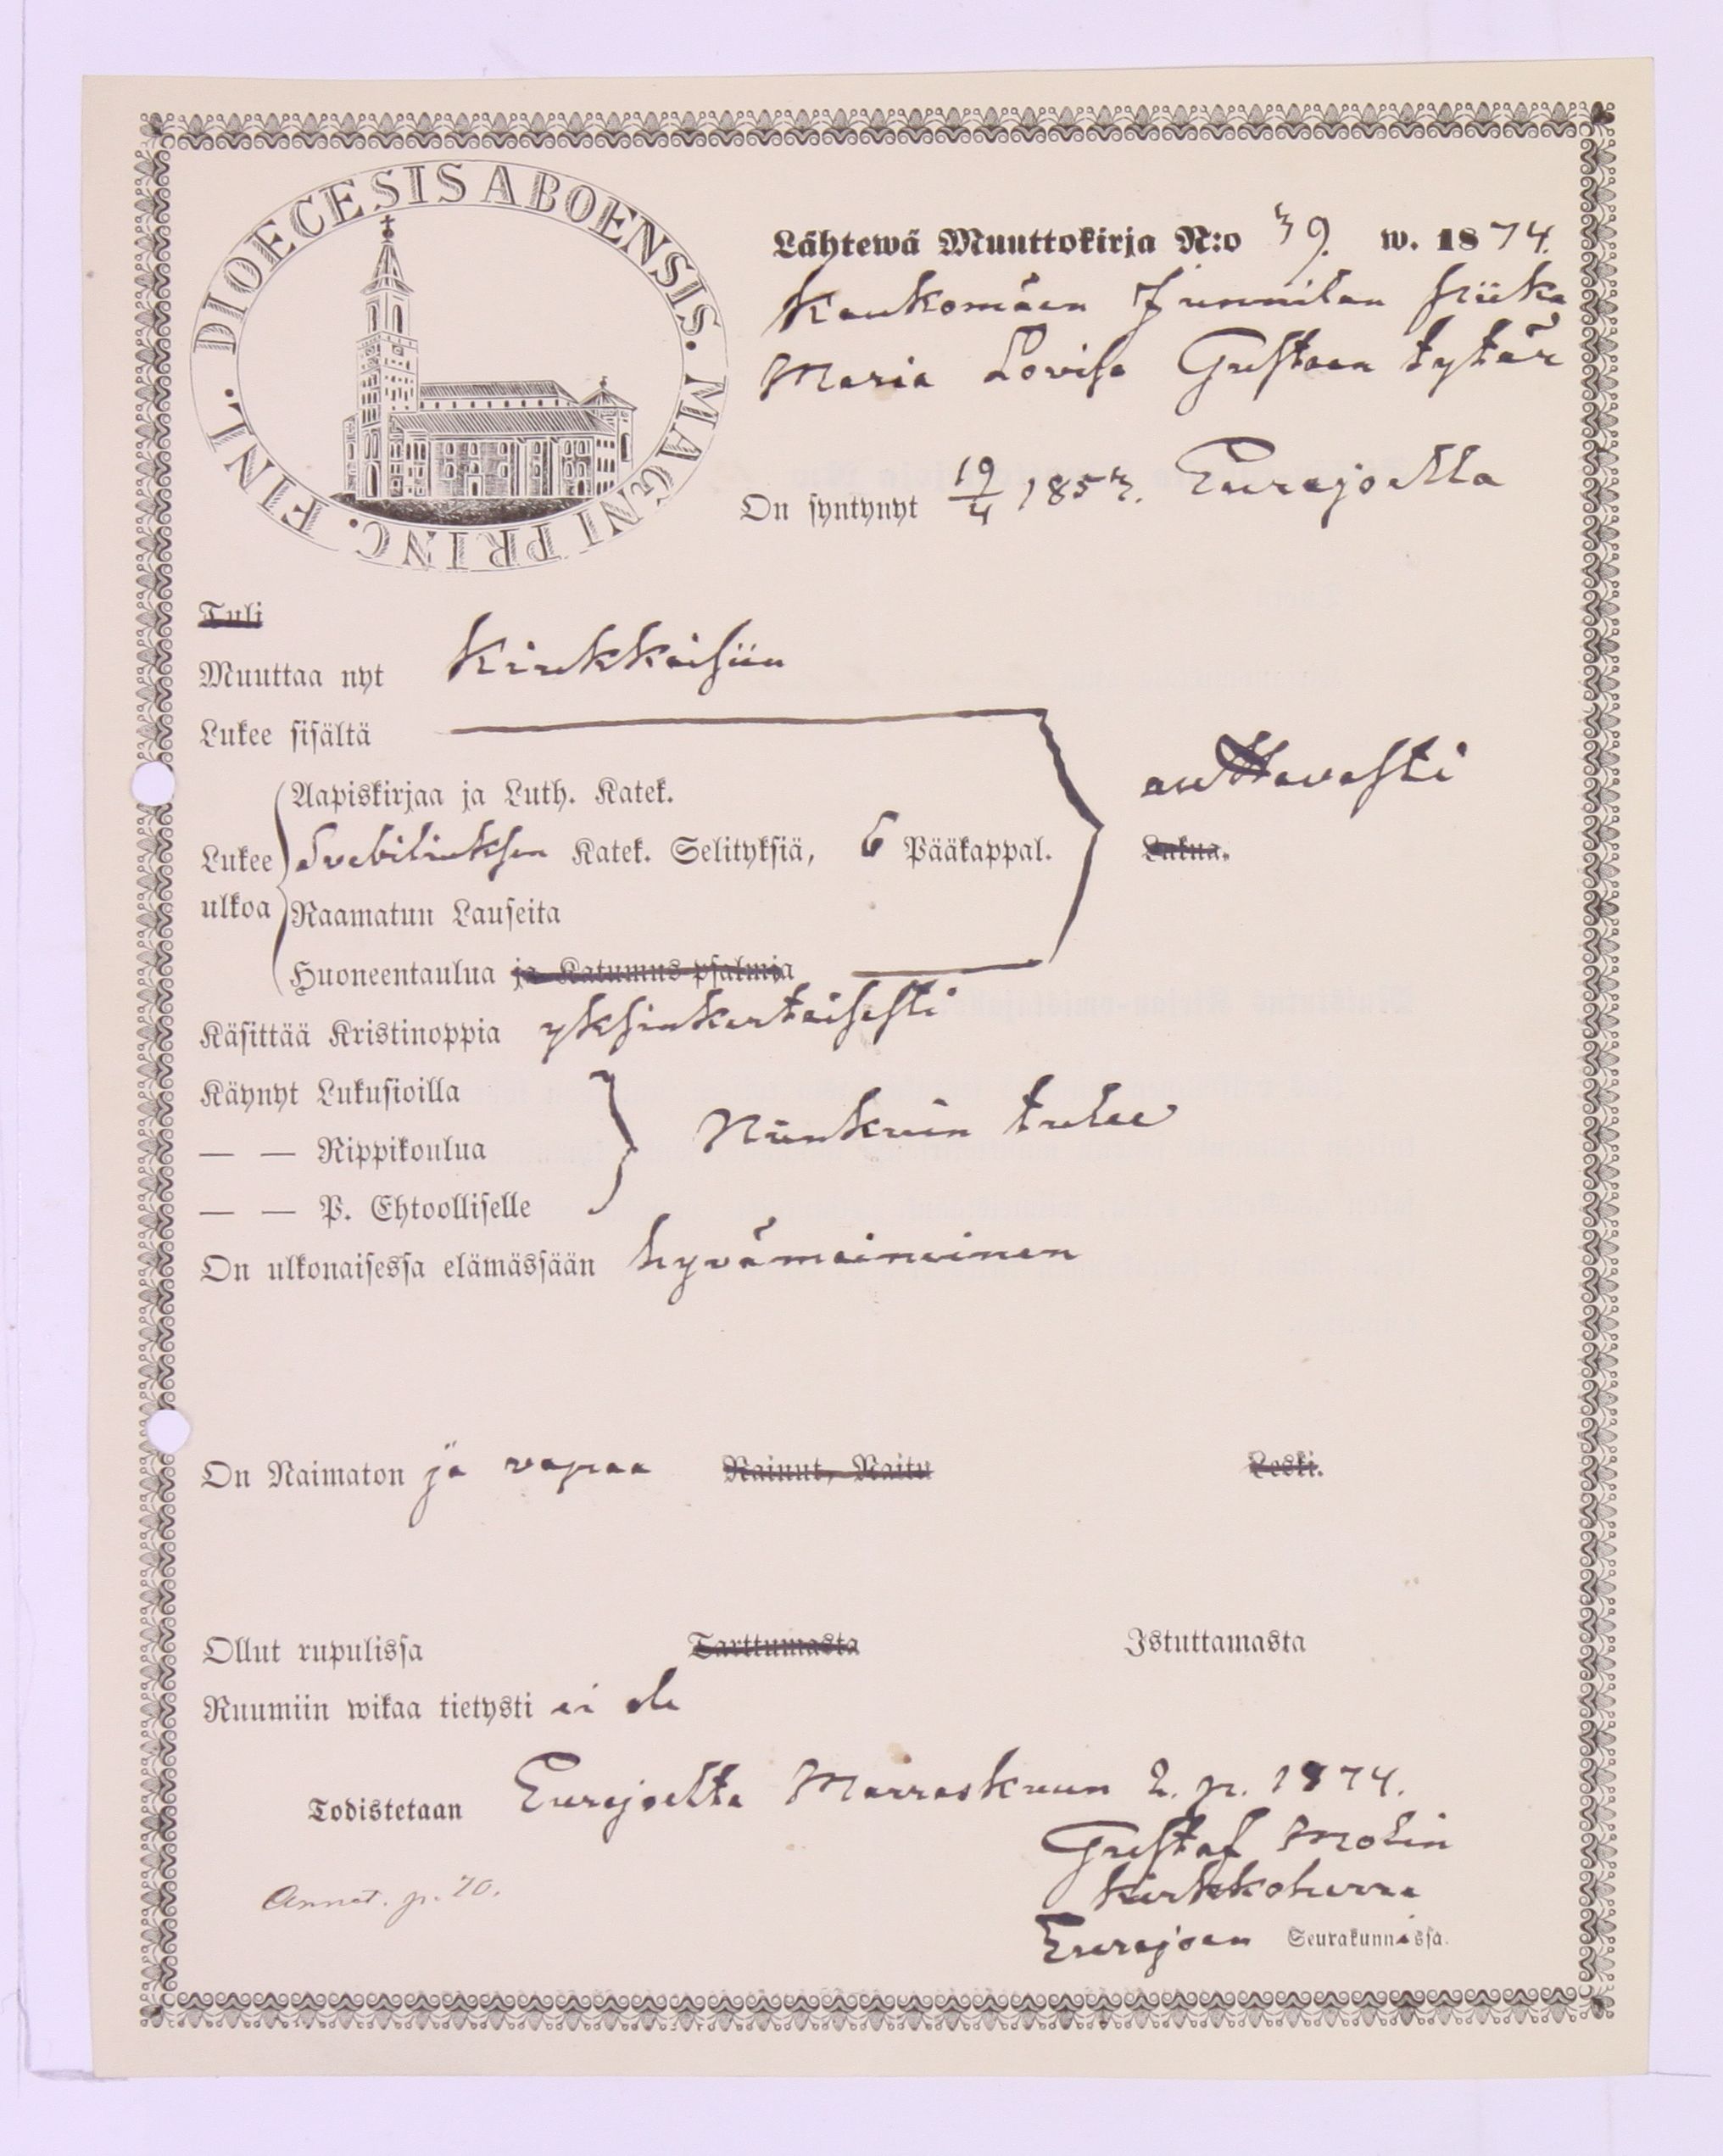 DIOECESIS ABOENSIS. MAGNI PRINC. FINL.
Lähtewä Muuttokirja N:o 39. w. 1874.
Kaukomäen Junnilan piika
Maria Lovisa Gustaan tytär
On syntynyt 19/4 1853. Eurajoella
Tuli
Muuttaa nyt Kiukkaisiin
Lukee sisältä
Aapiskirjaa ja Luth. Katek.
auttavasti
Lukee Svebiliuksen Katek. Selityksiä, 6 Pääkappal.
Lukua.
ulkoa Raamatun Lauseita
Huoneentaulua ja Katumus-psalmia
Käsittää Kristinoppia yksinkertaisesti
Käynyt Lukusioilla
— — Rippikoulua
Niinkuin tulee
— — P. Ehtoolliselle
On ulkonaisessa elämässään hyvämaineinen
On Naimaton ja vapaa Nainut, Naitu Leski.
Ollut rupulissa Tarttumasta Istuttamasta
Ruumiin wikaa tietysti ei ole
Todistetaan Eurajoelta Marraskuun 2. p. 1874.
Gustaf Molin
Kirkkoherra
Annet. p. 20.
Eurajoen Seurakunnassa.